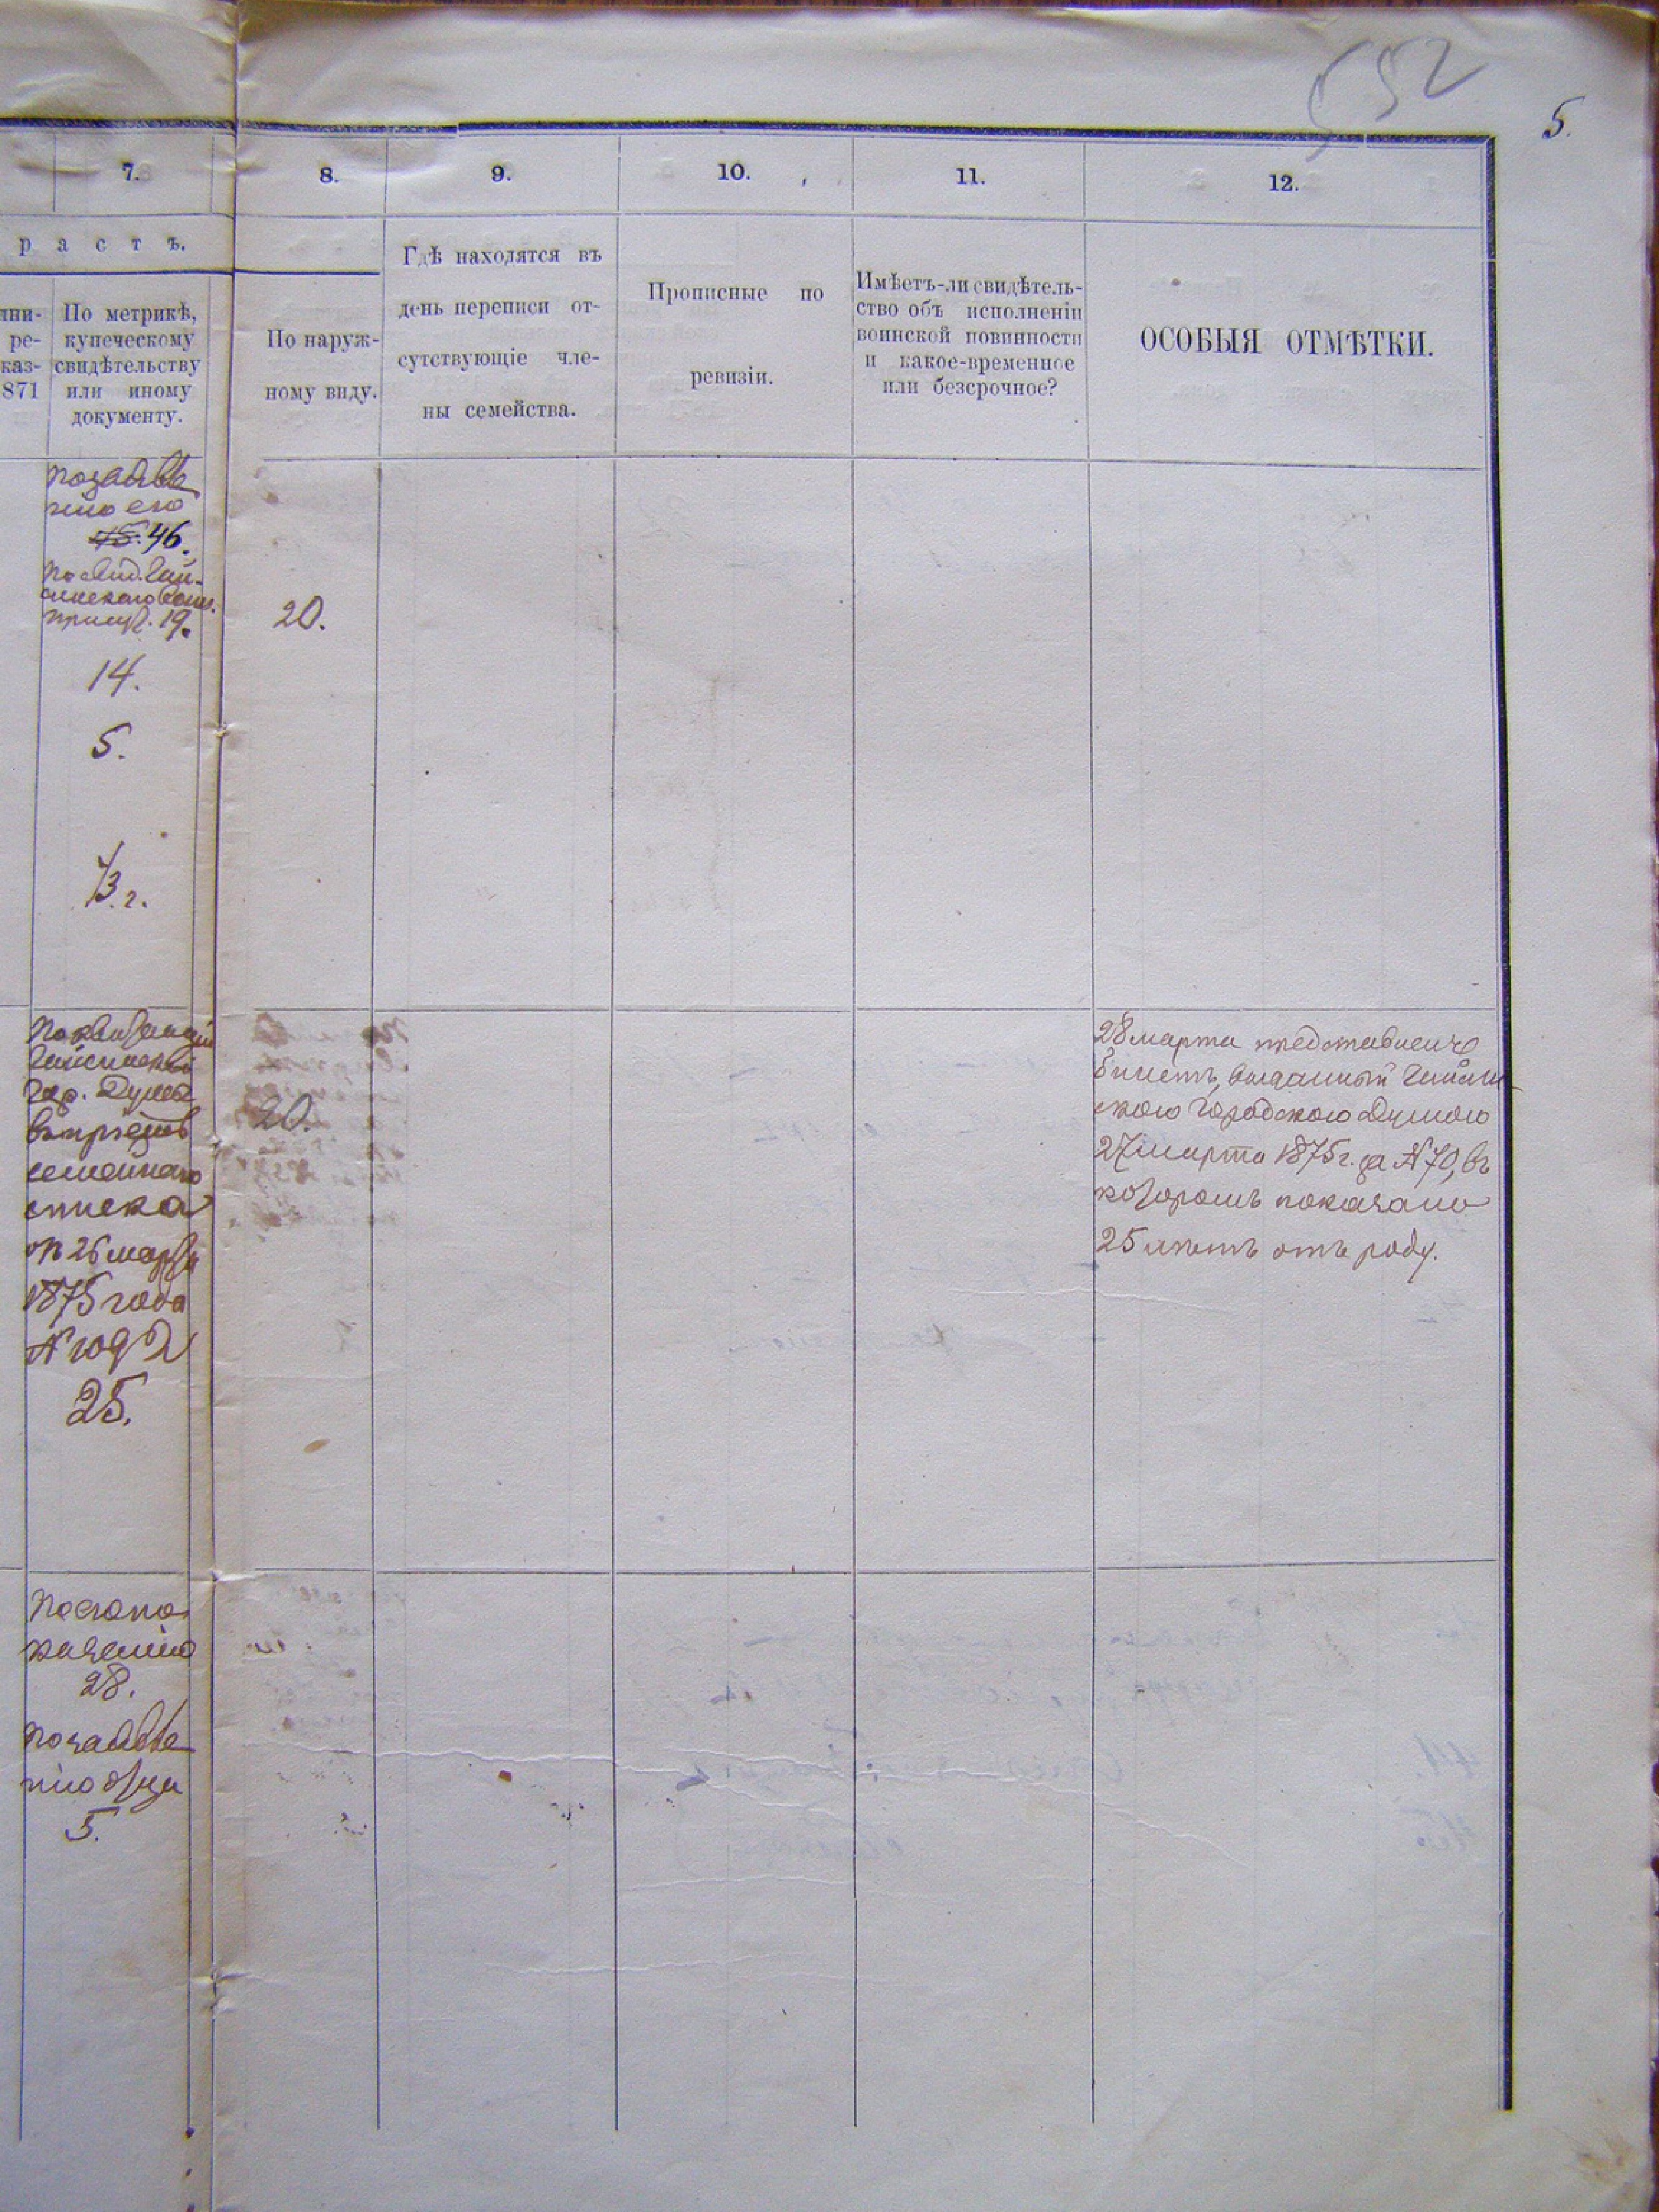 552
5.
7.
8.
9.
10.
11.
12.
р а с т ъ.
ре-
каз-
871
По метрикѣ,
купеческому
свидѣтельству
или иному
документу.
По наруж-
ному виду.
Гдѣ находятся въ
день переписи от-
сутствующіе чле-
ны семейства.
Прописные по
ревизіи.
Имѣетъ-ли свидѣтель-
ство объ исполненіи
воинской повинности
и какое-временное
или безсрочное?
ОСОБЫЯ ОТМѢТКИ.
По заявле
нію его
45. 46.
По свид. Гай-
синскаго воин.
присут. 19.
20.
14.
5.
73 г.
По квитанціи
Гайсинской
Гор. Думы
семейнаго
списка
от 26 марта
1875 года
№ 1092
25.
20.
28 марта представлен
билетъ, выданный Гайсин
скою Городскою Думою
27 марта 1875 г. за № 70, въ
которомъ показано
25 лѣтъ отъ роду.
По его по
казанію
28.
По заявле
нію отца
5.